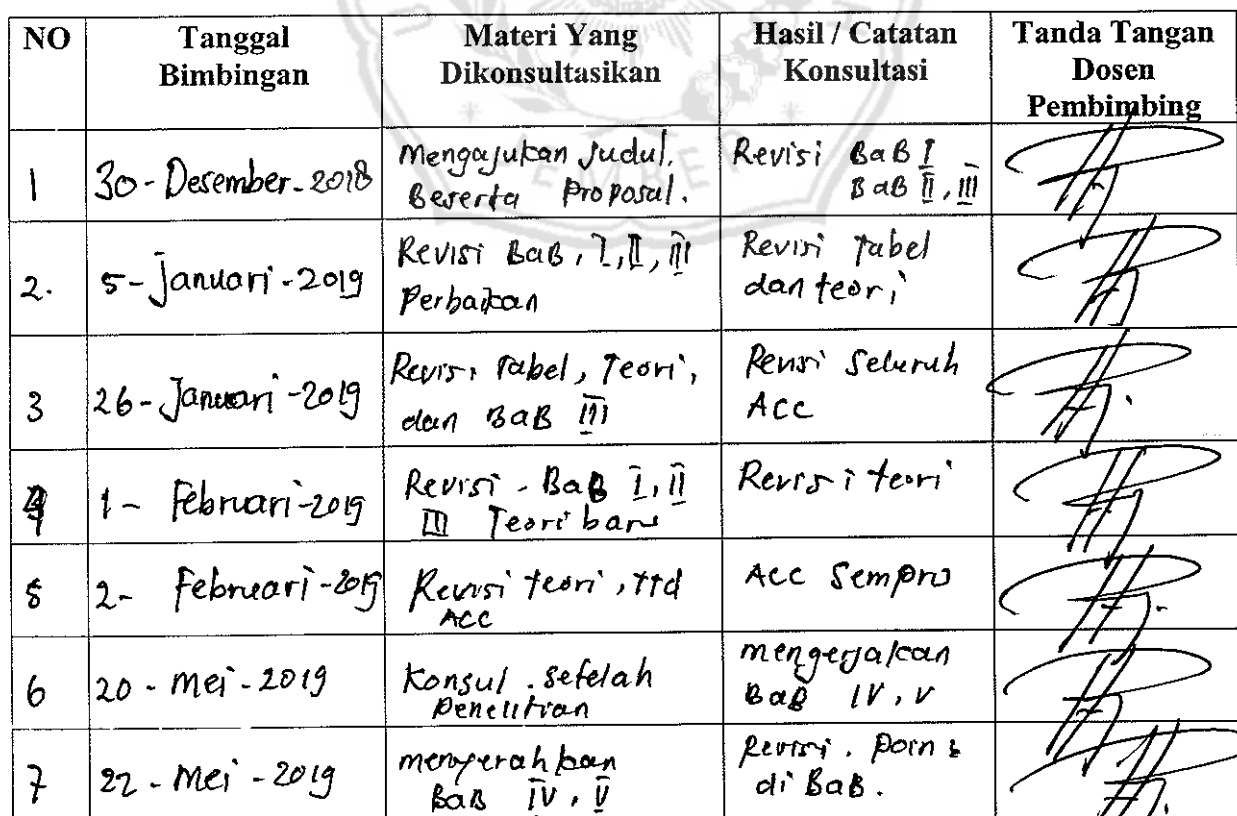 NO Tanggal Bimbingan Materi Yang Dikonsultasikan Hasil / Catatan Konsultasi Tanda Tangan Dosen Pembimbing
1 30 - Desember - 2018 Mengajukan Judul. Beserta Proposal. Revisi BaB I BaB II, III
2. 5 - Januari - 2019 Revisi BaB, I, II, III Perbaikan Revisi Tabel dan teori
3 26 - Januari - 2019 Revisi Tabel, Teori, dan BaB III Revisi Seluruh ACC
4 1 - Februari - 2019 Revisi - BaB I, II III Teori baru Revisi teori
5 2 - Februari - 2019 Revisi teori, ttd ACC ACC Sempro
6 20 - Mei - 2019 Konsul. Setelah Penelitian mengerjakan BaB IV, V
7 22 - Mei - 2019 menyerahkan BaB IV, V Revisi. Poin di BaB.
JEMBER